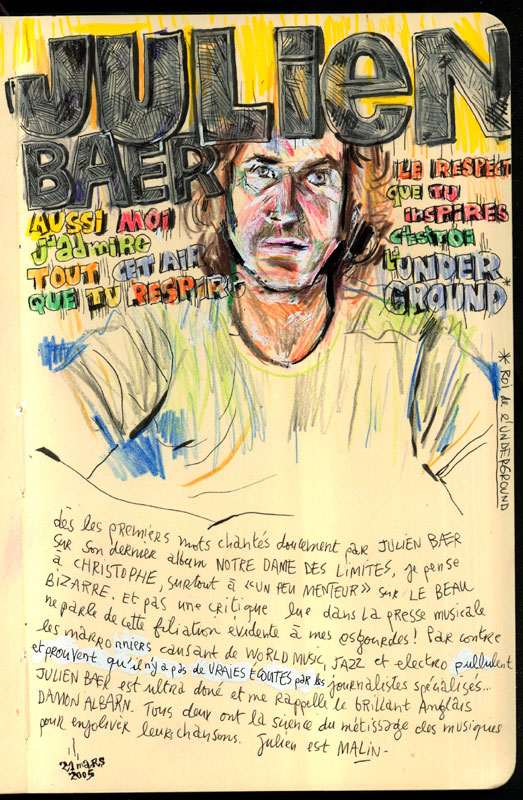 JULIEN
BAER
AUSSI MOI
J'ADMIRE
TOUT CET AIR
QUE TU RESPIRE
LE RESPECT
QUE TU
INSPIRES
C'EST TOI
L'UNDER
GROUND*
* ROI de l'UNDERGROUND
dès les premiers mots chantés doucement par JULIEN BAER
sur son dernier album NOTRE DAME DES LIMITES, je pense
à CHRISTOPHE, surtout à «UN PEU MENTEUR» sur LE BEAU
BIZARRE. Et pas une critique lue dans la presse musicale
ne parle de cette filiation évidente à mes esgourdes! Par contre
les marronniers causant de WORLD MUSIC, JAZZ et electro pullulent
et prouvent qu'il n'y a pas de VRAIES ECOUTES par les journalistes spécialisés...
JULIEN BAER est ultra doné et me rappelle le brillant Anglais
DAMON ALBARN. Tous deux ont la science du métissage des musiques
pour enjoliver leurs chansons. Julien est MALIN-
21 mars
2005